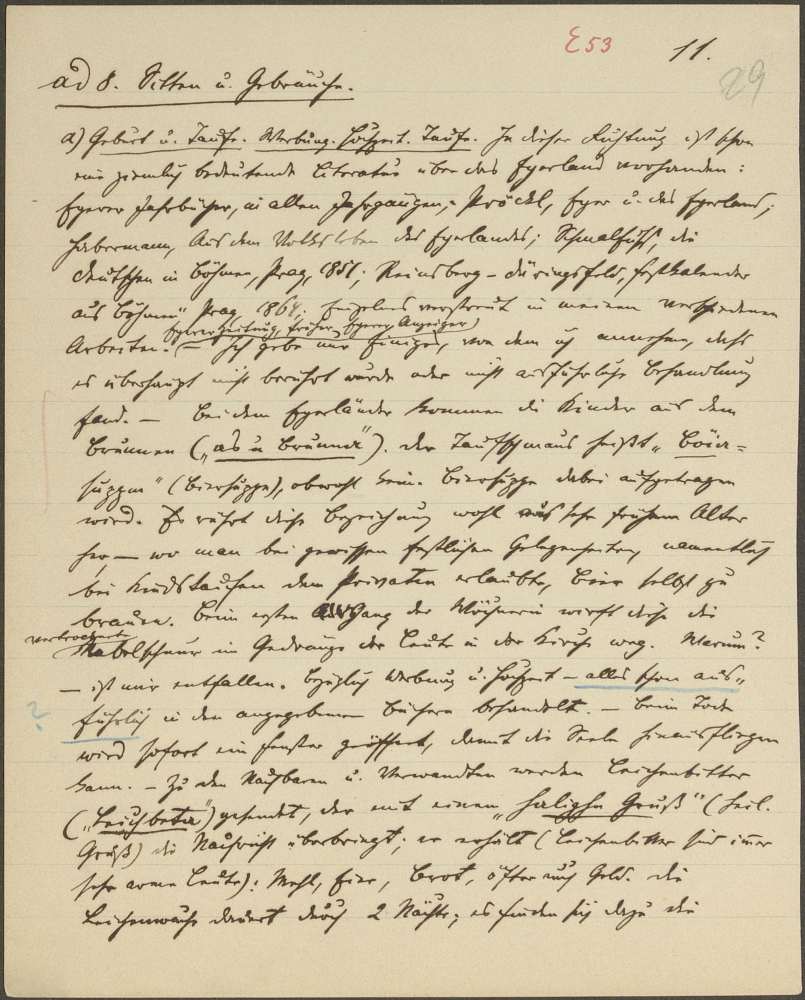 E 53 11.
29
ad 8. Sitten u. Gebräuche.
a) Geburt u. Taufe. Werbung. Hochzeit. Taufe. In dieser Richtung ist schon
eine ziemlich bedeutende Literatur über das Egerland vorhanden:
Egerer Jahrbücher, in allen Jahrgängen, Pröckl, Eger u. das Egerland;
Habermann, Aus dem Volksleben des Egerlandes; Schmalfuß, die
Deutschen in Böhmen, Prag, 1851; Reinsberg-Düringsfeld, Festkalender
aus Böhmen" Prag, 1864; Einzelnes verstreut in meinen verschiedenen
Egerer Zeitung, früher Egerer Anzeiger)
Arbeiten. (– Ich gebe nur Einiges, von dem ich annehme, daß
es überhaupt nicht berührt wurde oder nicht ausführliche Behandlung
fand. – Bei dem Egerländer kommen die Kinder aus dem
Brunnen („as'n Brunna"). Der Taufschmaus heißt „Böia=
suppm" (Biersuppe), obwohl keine Biersuppe dabei aufgetragen
wird. Es rührt diese Bezeichnung wohl aus sehr frühem Alter
her – wo man bei gewissen festlichen Gelegenheiten, namentlich
bei Kindstaufen dem Privaten erlaubte, Bier selbst zu
brauen. Beim ersten Ausgang der Wöchnerin wirft diese die
vertrocknete
Nabelschnur im Gedränge der Leute in der Kirche weg. Warum?
– ist mir entfallen. Bezüglich Werbung u. Hochzeit – alles schon aus„
? führlich in den angegebenen Büchern behandelt. – Beim Tode
wird sofort ein Fenster geöffnet, damit die Seele hinausfliegen
kann. – Zu den Nachbaren u. Verwandten werden Leichenbitter
(„Leichbeta") gesendet, der mit einem „halighn Gruß" (heil.
Gruß) die Nachricht überbringt; er erhält (Leichenbitter sind im̄er
sehr arme Leute): Mehl, Eier, Brot, öfter auch Geld. Die
Leichenwache dauert durch 2 Nächte; es finden sich dazu die